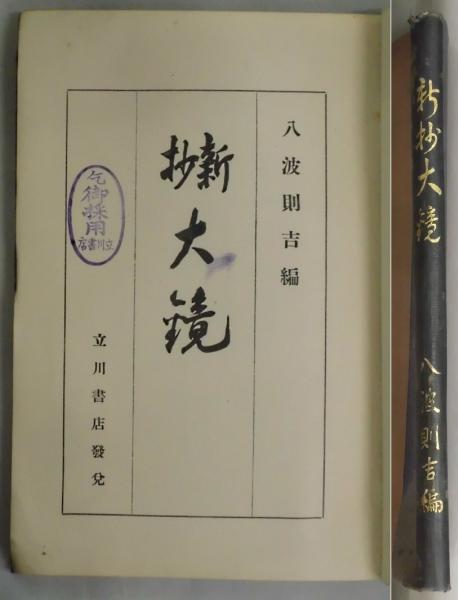 八波則吉編
新抄
大鏡
立川書店發兌
乞御採用
立川書店
新抄大鏡
八波則吉編